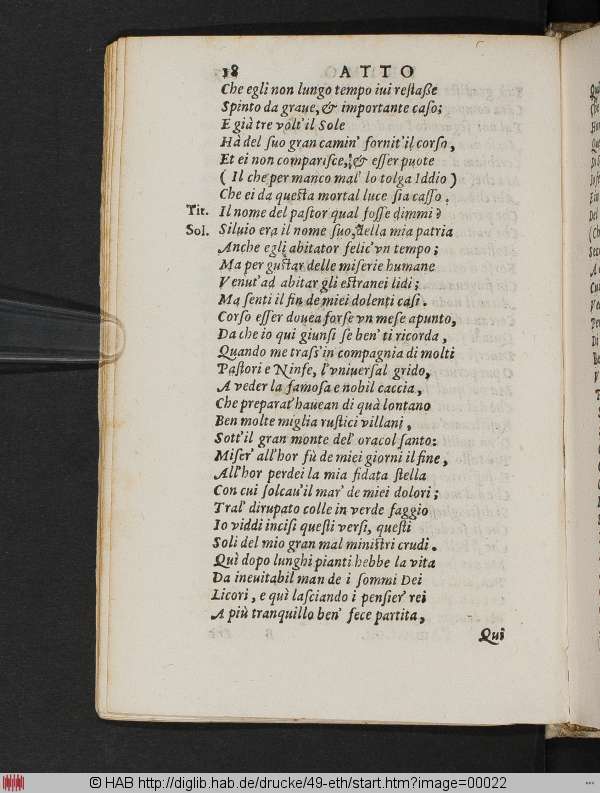 18 ATTO
Che egli non lungo tempo iui restaße
Spinto da graue, & importante caso;
E già tre volt' il Sole
Hà del suo gran camin' fornit' il corso,
Et ei non comparisce, & esser puote
( Il che per manco mal' lo tolga Iddio )
Che ei da questa mortal luce sia casso.
Tit. Il nome del pastor qual fosse dimmi?
Sol. Siluio era il nome suo, della mia patria
Anche egli abitator felic' vn tempo;
Ma per gustar delle miserie humane
Venut' ad abitar gli estranei lidi;
Ma senti il fin de miei dolenti casi.
Corso esser douea forse vn mese apunto,
Da che io qui giunsi se ben' ti ricorda,
Quando me trass' in compagnia di molti
Pastori e Ninfe, l'vniuersal grido,
A veder la famosa e nobil caccia,
Che preparat' hauean di quà lontano
Ben molte miglia rustici villani,
Sott' il gran monte del' oracol santo:
Miser' all'hor fù de miei giorni il fine,
All'hor perdei la mia fidata stella
Con cui solcau' il mar' de miei dolori;
Tral' dirupato colle in verde faggio
Io viddi incisi questi versi, questi
Soli del mio gran mal ministri crudi.
Quì dopo lunghi pianti hebbe la vita
Da ineuitabil man de i sommi Dei
Licori, e quì lasciando i pensier' rei
A più tranquillo ben' fece partita,
Qui
© HAB http://diglib.hab.de/drucke/49-eth/start.htm?image=00022